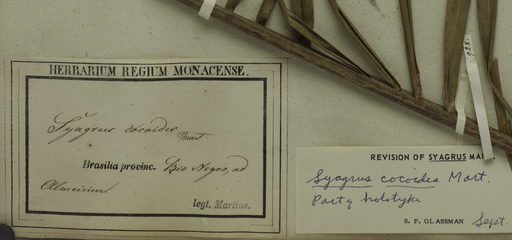 HERBARIUM REGIUM MONACENSE.
Syagrus cocoides Mart.
Brasilia provinc. Rio Negro, ad
Almeirim
legt. Martius.
REVISION OF SYAGRUS MA
Syagrus cocoidea Mart.
Part of holotype
S. F. GLASSMAN Sept.